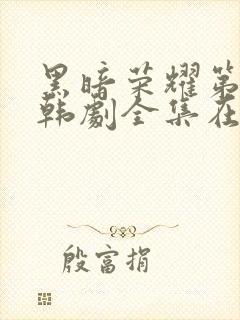 黑暗荣耀第
韩剧全集在
殷富捐